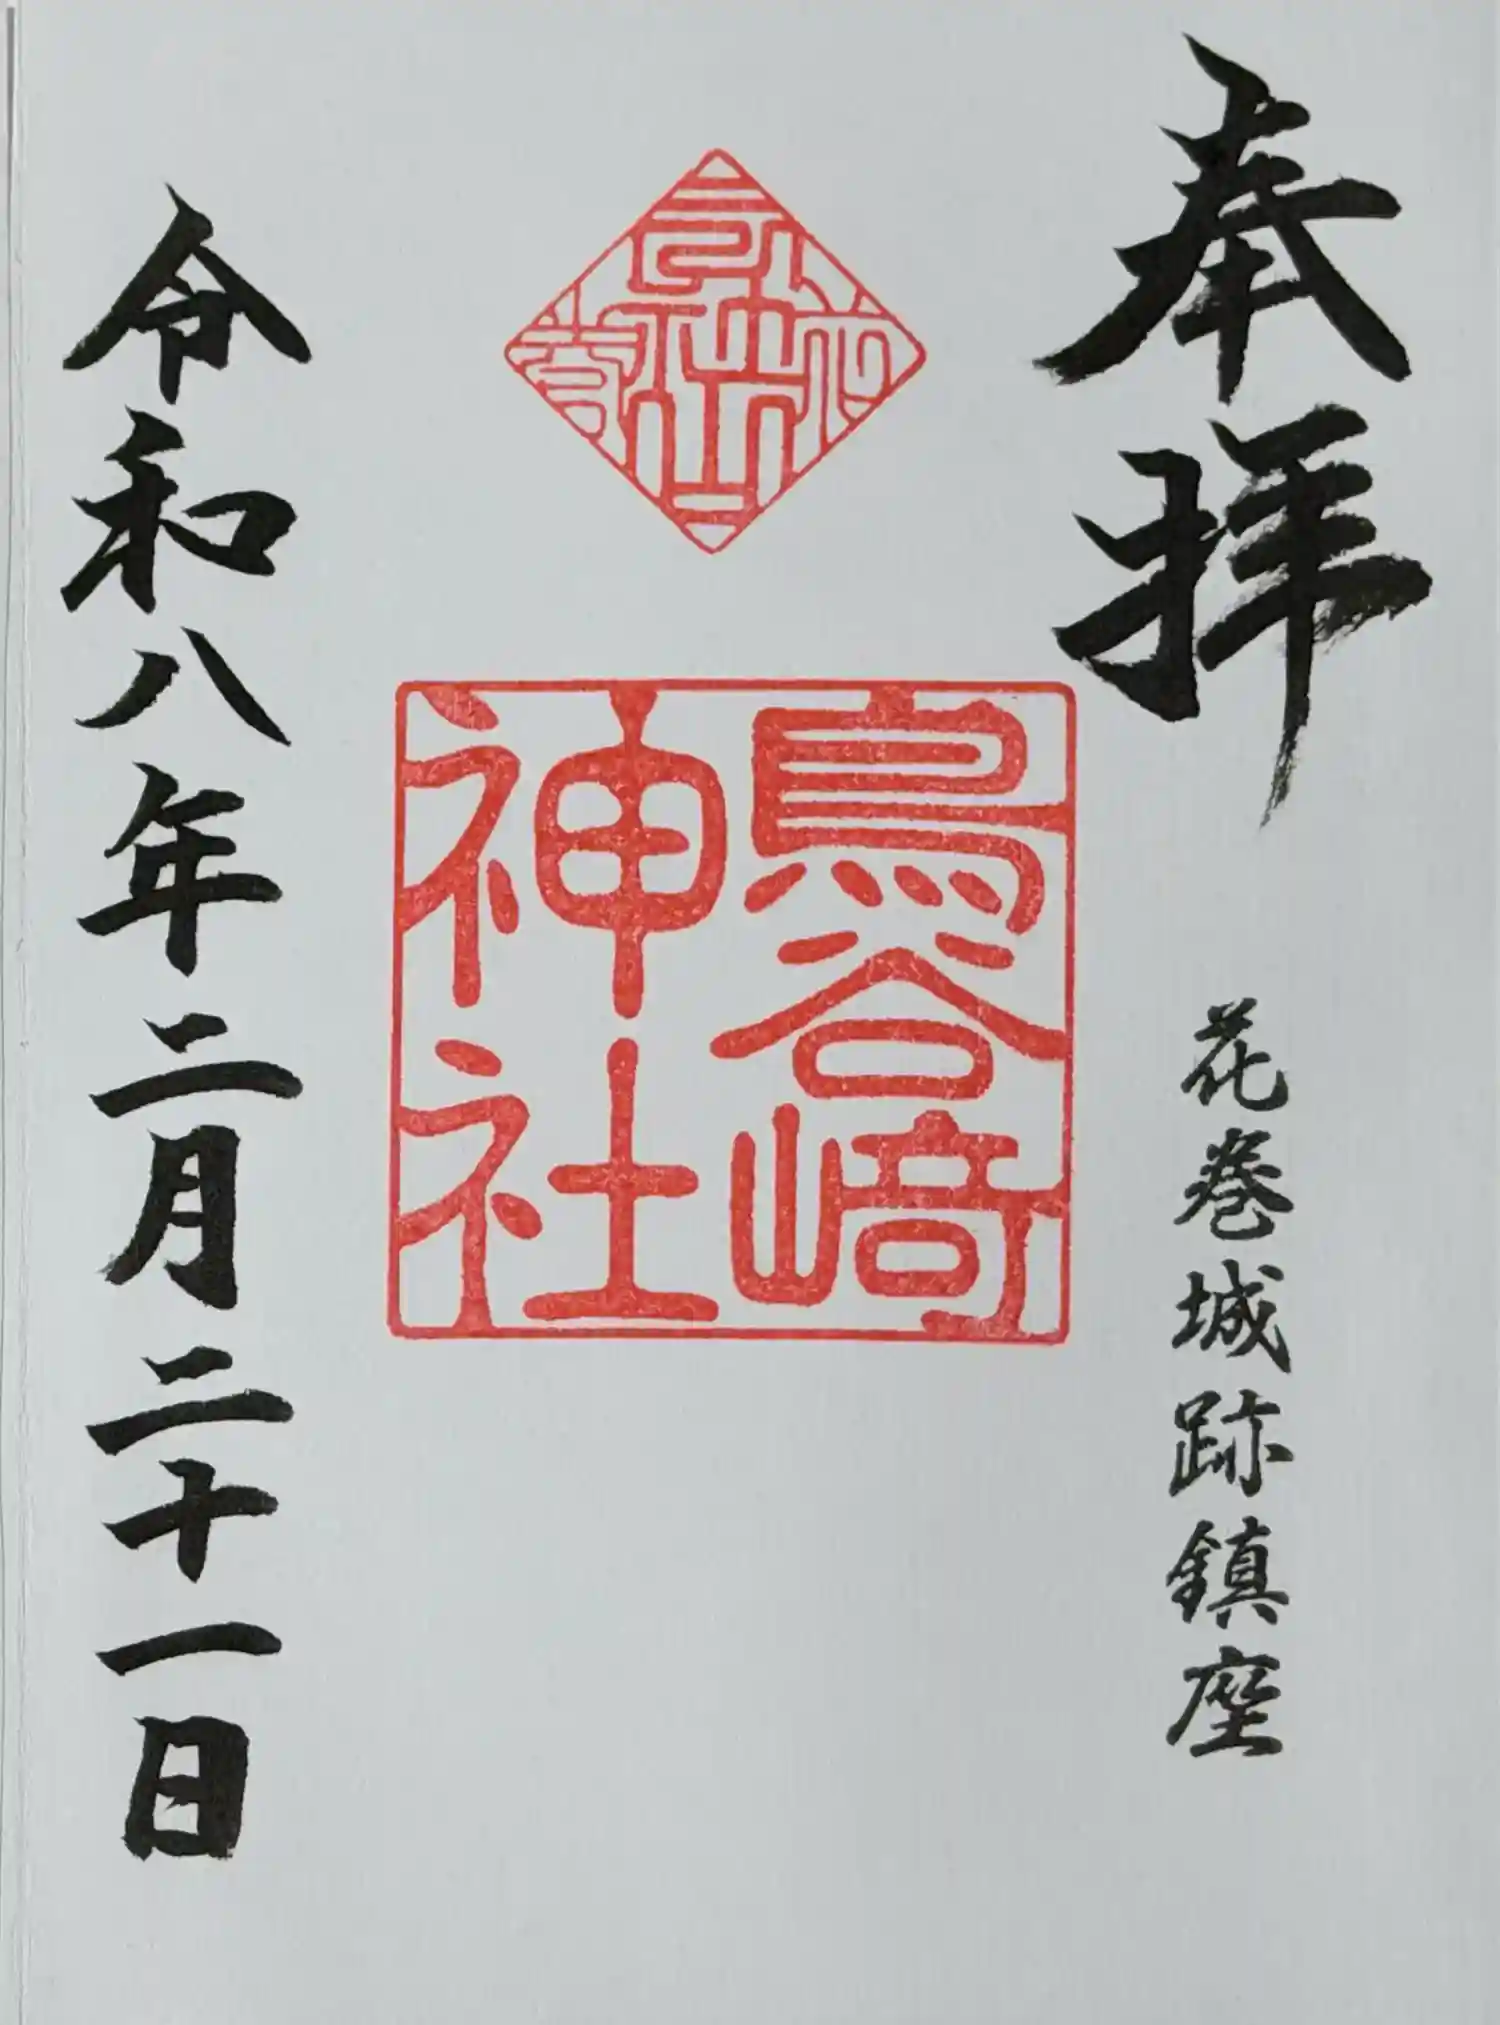 奉拝
花巻城跡鎮座
鳥谷﨑
神社
令和八年二月二十一日